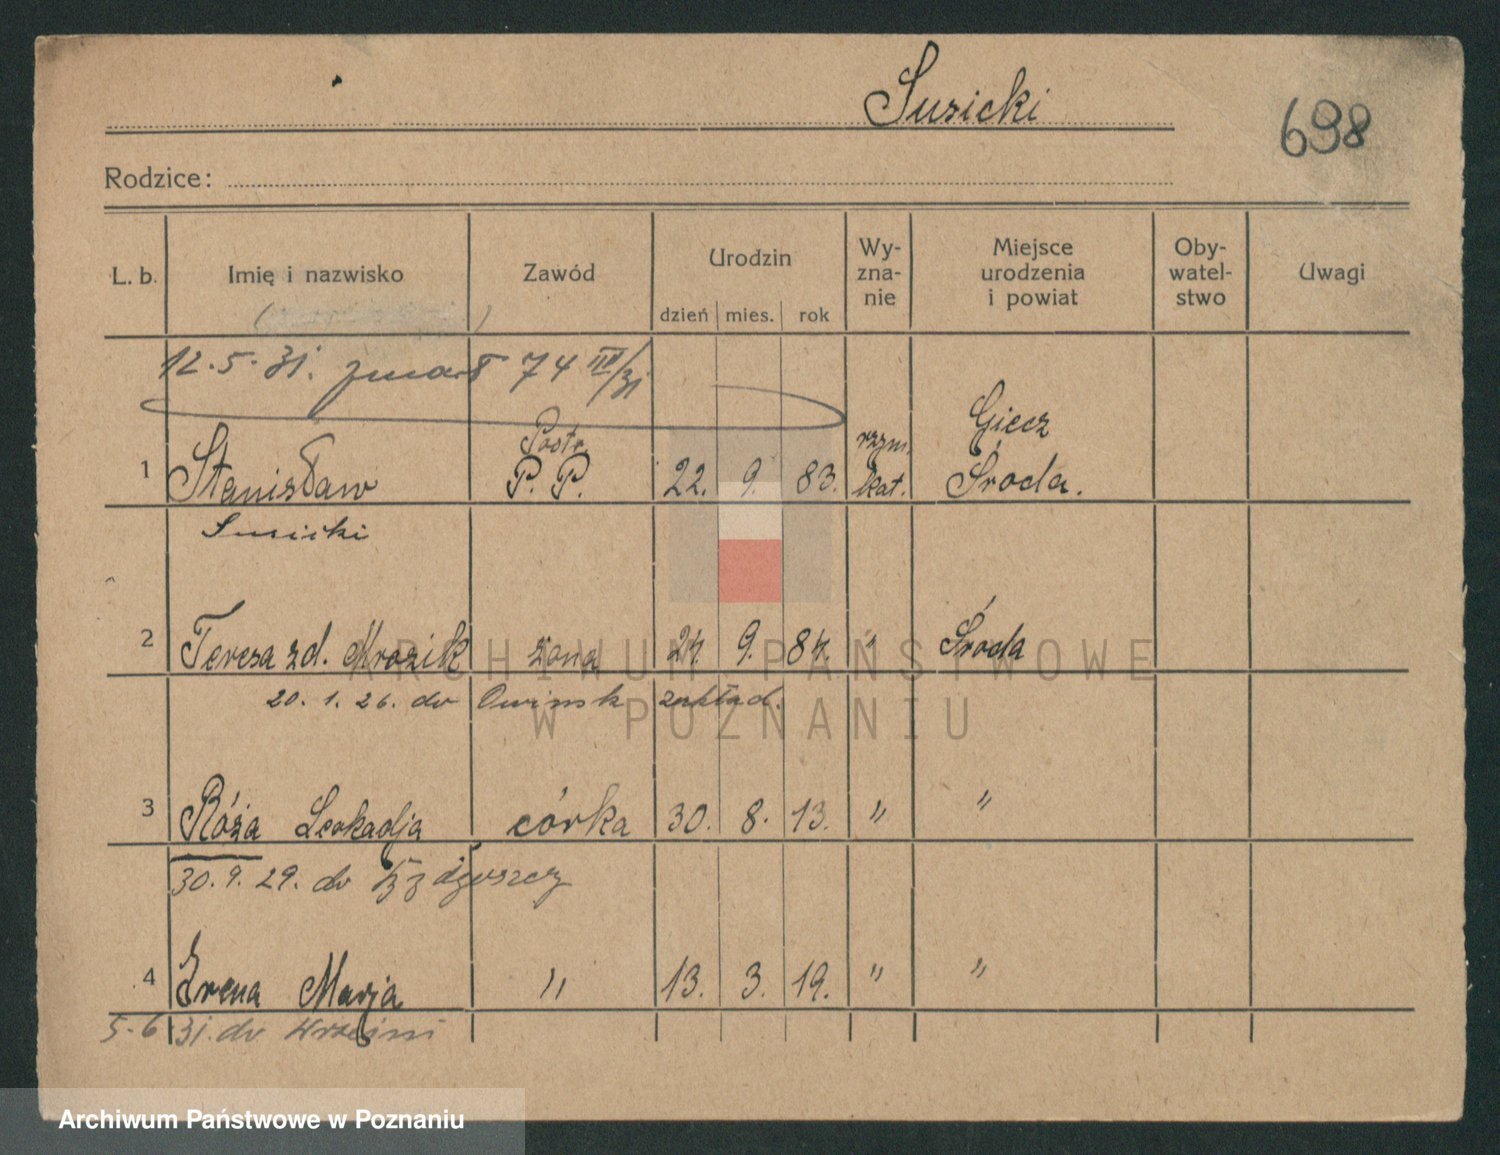 Susicki
698
Rodzice:
L. b. Imię i nazwisko Zawód Urodzin dzień mies. rok Wy- zna- nie Miejsce urodzenia i powiat Oby- watel- stwo Uwagi
12.5.31. zmarł 74 III/31
1 Stanisław Poste. P. P. 22. 9. 83. rzym. kat. Giecz Środa.
Susicki
2 Teresa zd. Mrozik żona 24. 9. 84. " Środa
20.1.26. do Owinsk zakład.
3 Róża Leokadja córka 30. 8. 13. " "
30.9.29. do Bydgoszcz
4 Irena Marja " 13. 3. 19. " "
5-6 31. do Wrześni
ARCHIWUM PAŃSTWOWE
W POZNANIU
Archiwum Państwowe w Poznaniu